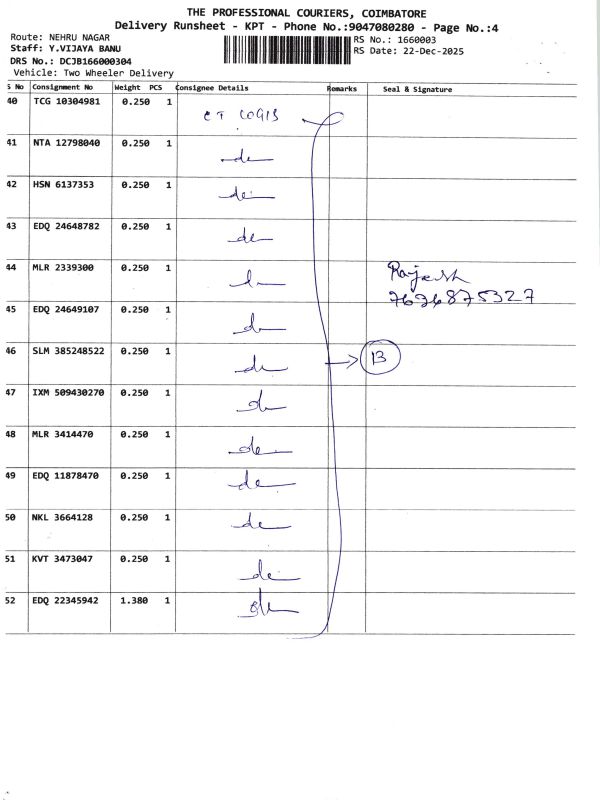 THE PROFESSIONAL COURIERS, COIMBATORE
Delivery Runsheet - KPT - Phone No.:9047080280 - Page No.:4
Route: NEHRU NAGAR
RS No.: 1660003
Staff: Y.VIJAYA BANU
RS Date: 22-Dec-2025
DRS No.: DCJB166000304
Vehicle: Two Wheeler Delivery
S No Consignment No Weight PCS Consignee Details Remarks Seal & Signature
40 TCG 10304981 0.250 1 CT LOGIS
41 NTA 12798040 0.250 1 do
42 HSN 6137353 0.250 1 do
43 EDQ 24648782 0.250 1 do
44 MLR 2339300 0.250 1 do Rajesh
7626875327
45 EDQ 24649107 0.250 1 do
46 SLM 385248522 0.250 1 do 13
47 IXM 509430270 0.250 1 do
48 MLR 3414470 0.250 1 do
49 EDQ 11878470 0.250 1 do
50 NKL 3664128 0.250 1 do
51 KVT 3473047 0.250 1 do
52 EDQ 22345942 1.380 1 do